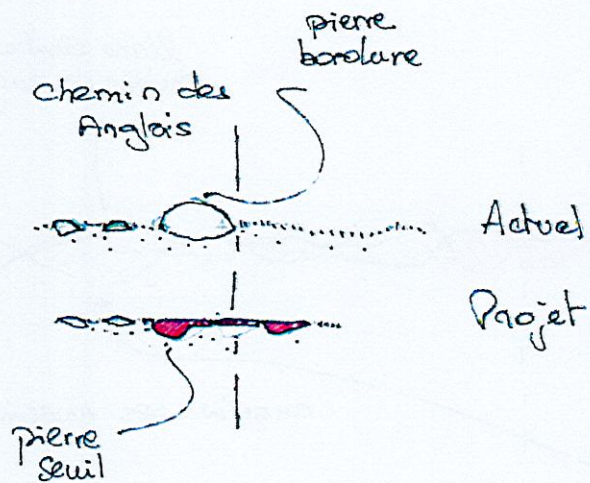 pierre
bordure
Chemin des
Anglais
Actuel
Projet
pierre
seuil